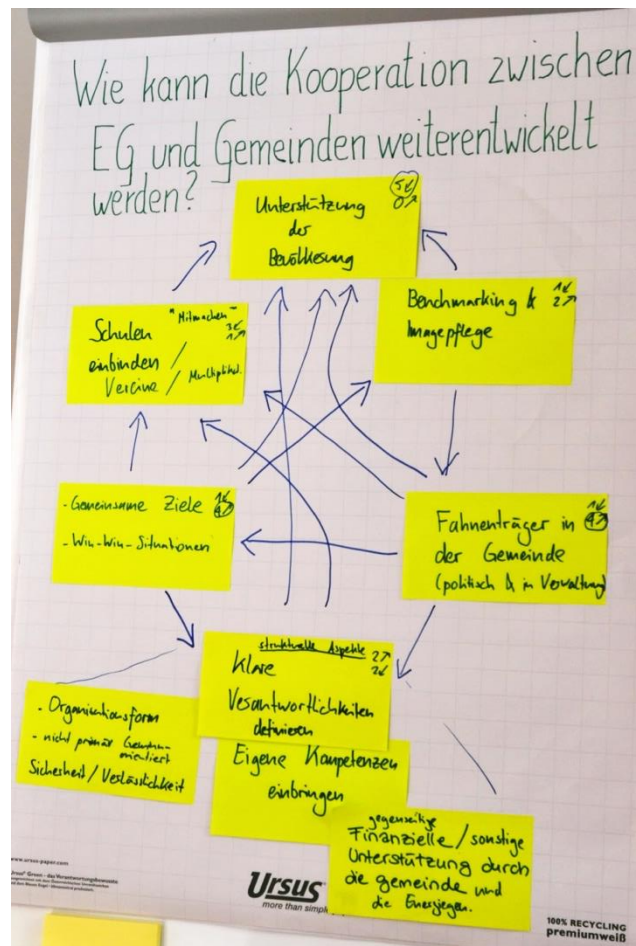 Wie kann die Kooperation zwischen
EG und Gemeinden weiterentwickelt
werden?
Unterstützung
der
Bevölkerung
5↙
0↗
"Mitmachen"
Schulen
3↙
1↗
einbinden /
Vereine / Multiplikat.
Benchmarking &
Imagepflege
1↙
2↗
- Gemeinsame Ziele
1↙
4↗
- Win-Win-Situationen
Fahnenträger in
der Gemeinde
(politisch & in Verwaltung)
1↙
4↗
strukturelle Aspekte
2↗
2↙
Klare
Verantwortlichkeiten
definieren
- Organisationsform
- nicht primär
orientiert
Sicherheit / Verlässlichkeit
Eigene Kompetenzen
einbringen
gegenseitige
Finanzielle / sonstige
Unterstützung durch
die gemeinde und
die Energiegen.
www.ursus-paper.com
Ursus
more than simply
100% RECYCLING
premiumweiß